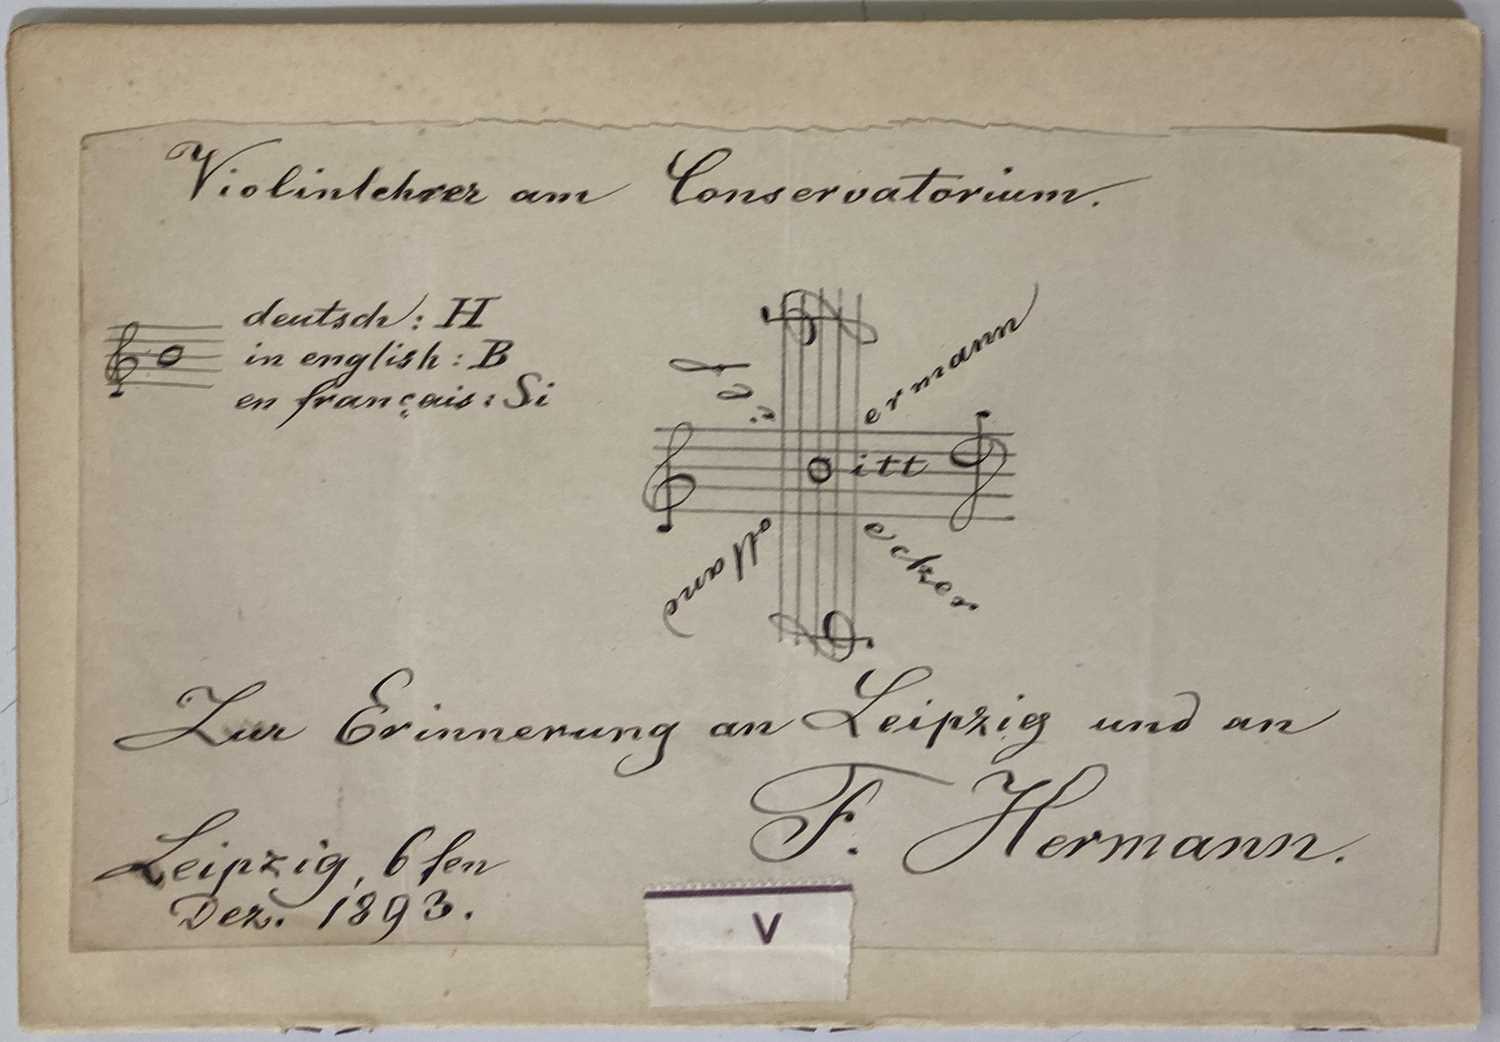 Violinlehrer am Conservatorium.
deutsch: H
in english: B
en français: Si
ilf
ermann
itt
olland
ecker
Zur Erinnerung an Leipzig und an
F. Hermann.
Leipzig, 6ten
Dez. 1893.
V